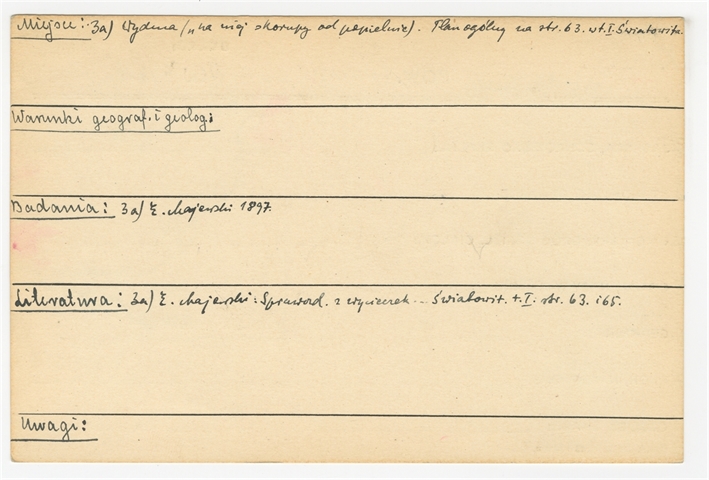 Miejsce: 3a) Wydma („na niej skorupy od popielnic). Plan ogólny na str. 63. w t. I. Światowita.
Warunki geograf. i geolog:
Badania: 3a) E. Majewski 1897.
Literatura: 3a) E. Majewski: Sprawozd. z wycieczek... Światowit. t. I. str. 63. i 65.
Uwagi: